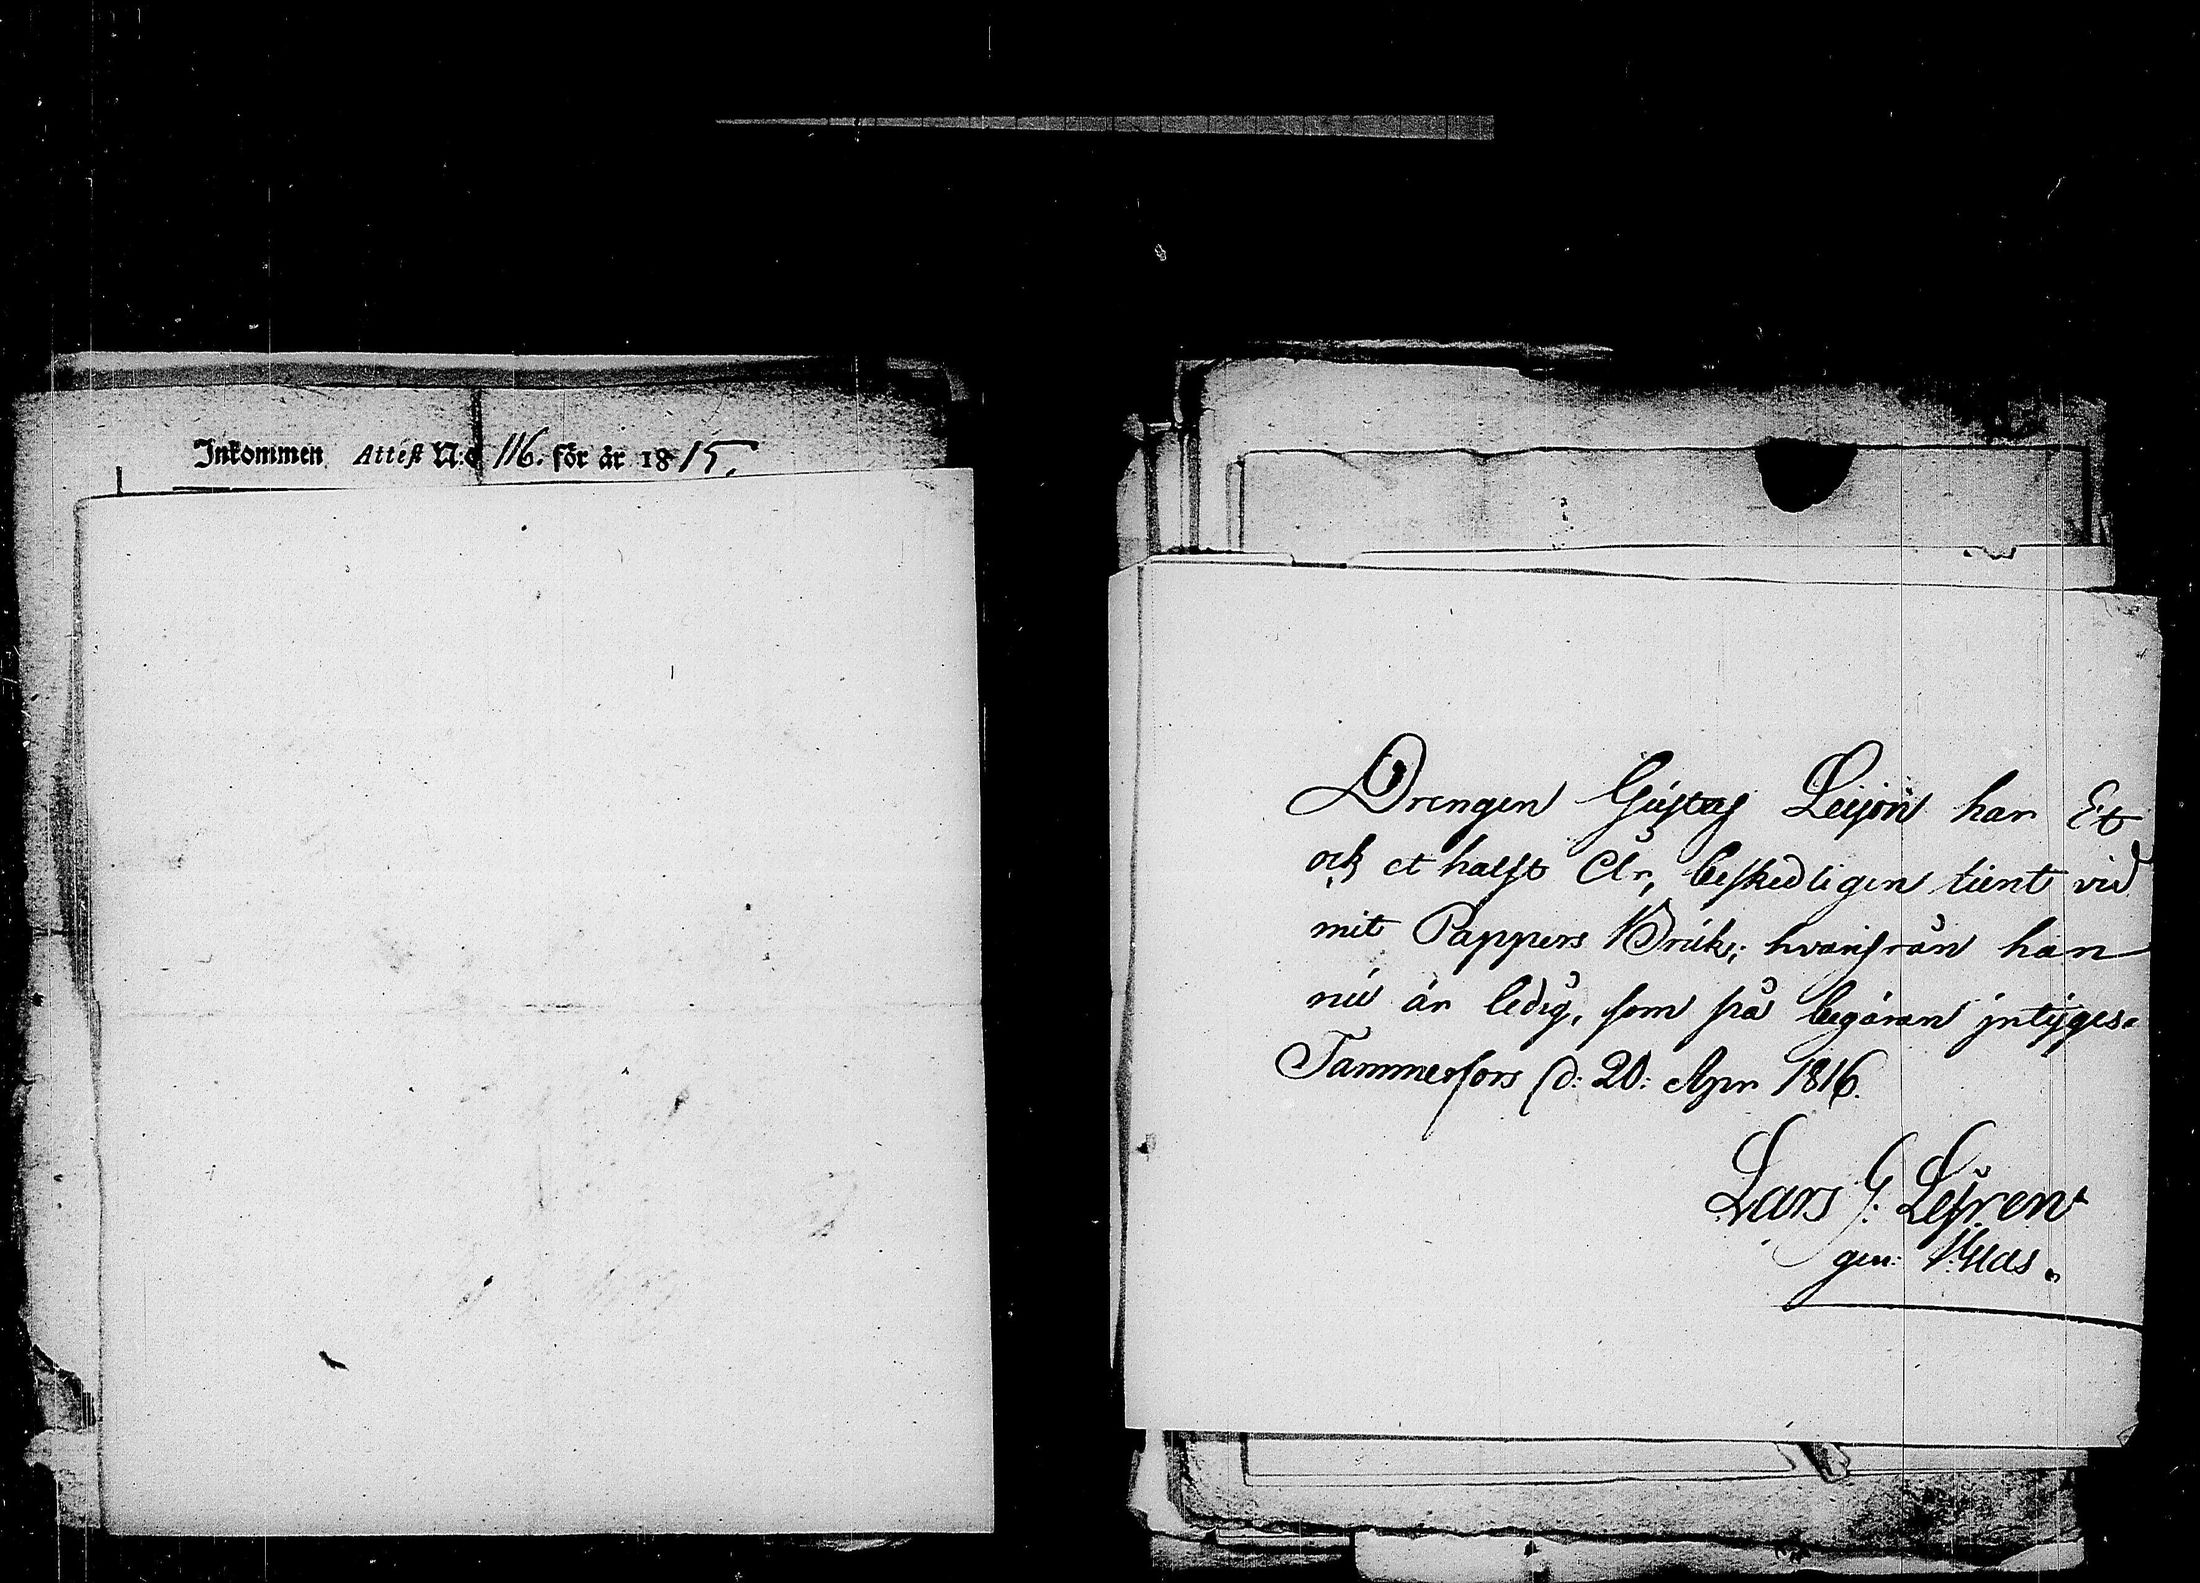 Inkommen Attest N:o 116. för år 1815.
Drengen Gustaf Leijon har Et
och et halft År, beskedligen tient vid
mit Pappers Bruk; hvarifrån han
nu är ledig, som på begäran intygas.
Tammerfors d: 20: Apr 1816.
Lars G: Lefren
gen: